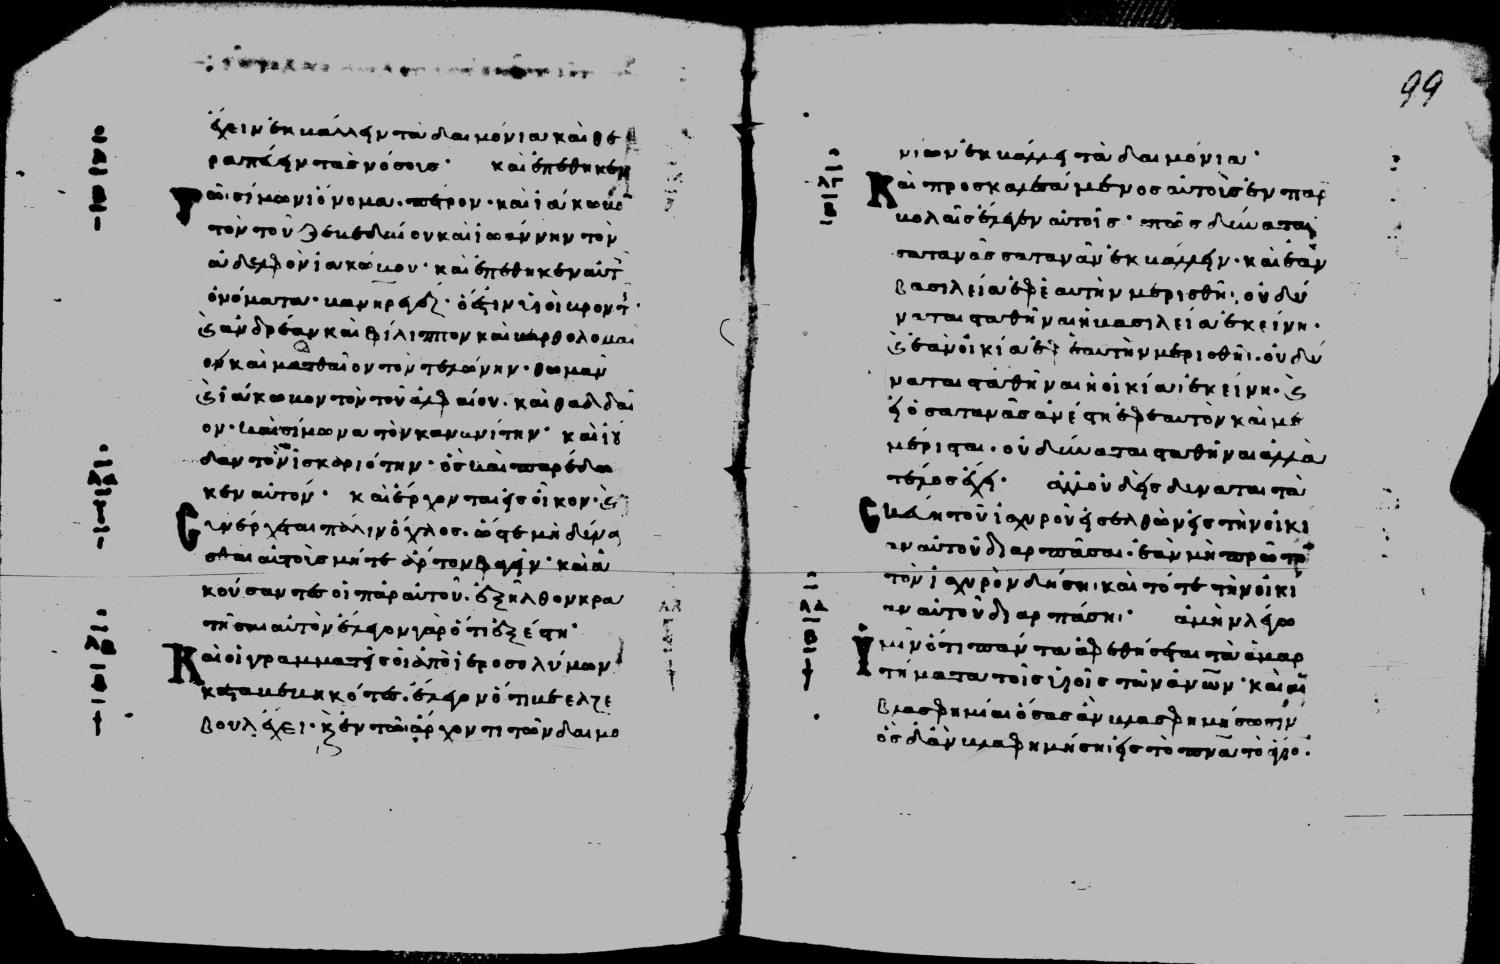 ἔχειν ἐκβάλλειν τὰ δαιμόνια καὶ θε
ραπεύειν τὰς νόσοις· καὶ ἐπέθηκεν
τῶ σίμωνι ὄνομα· πέτρον· καὶ ἰάκωβο
τὸν τοῦ ζεβεδαίου καὶ ἰωάννην τὸν
ἀδελφὸν ἰακώβου· καὶ ἐπέθηκεν αὐτ
ὀνόματα· βανηρεγέζ· ὅ ἐστιν υἱοὶ βροντ·
ϗ ἀνδρέαν καὶ φίλιππον καὶ βαρθολομαι
ον καὶ ματθαῖον τὸν τελώνην· θωμᾶν
ϗ ἰάκωβον τὸν τοῦ ἀλφαίου· καὶ θαδδαῖ
ον· καὶ σίμωνα τὸν κανανίτην· καὶ ἰού
δαν τὸν ἰσκαριότην· ὃς καὶ παρέδω
κεν αὐτόν· καὶ ἔρχονται εἰς οἶκον· ϗ
συνέρχεται πάλιν ὄχλος· ὥστε μὴ δύνα
σθαι αὐτοὺς μήτε ἄρτον φαγεῖν· καὶ ἀ
κούσαντες οἱ παρ αὐτοῦ· ἐξῆλθον κρα
τῆσαι αὐτὸν ἔλεγον γὰρ ὅτι ἐξέστη·
Καὶ οἱ γραμματεῖς οἱ ἀπὸ ἱεροσολύμων
καταβεβηκότες· ἔλεγον ὅτι βεελζε
βουλ ἔχει· ϗ ἐν τῶ ἄρχοντι τῶν δαιμο
99
νίων ἐκβάλλει τὰ δαιμόνια·
Καὶ προσκαλεσάμενος αὐτοὺς ἐν παρ
βολαῖς ἔλεγεν αὐτοῖς· πῶς δύναται
σατανᾶς σατανᾶν ἐκβάλλειν· καὶ ἐὰν
βασιλεία ἐφ ἑαυτὴν μερισθῆ· οὐ δύ
ναται σταθῆναι ἡ βασιλεία ἐκείνη·
ϗ ἐὰν οἰκία ἐφ ἑαυτὴν μερισθῆ· οὐ δύ
ναται σταθῆναι ἡ οἰκία ἐκείνη· ϗ
εἰ ὁ σατανᾶς ἀνέστη ἐφ ἑαυτὸν καὶ με
μέρισται· οὐ δύναται σταθῆναι ἀλλὰ
τέλος ἔχει· ἀλλ οὐδεὶς δύναται τὰ
σκεύη τοῦ ἰσχυροῦ εἰσελθὼν εἰς τὴν οἰκί
αν αὐτοῦ διαρπᾶσαι· ἐὰν μὴ πρῶτο
τὸν ἰσχυρὸν δήση· καὶ τότε τὴν οἰκί
αν αὐτοῦ διαρπάση· ἀμὴν λέγω
ὑμῖν ὅτι πάντα ἀφεθήσεται τὰ ἁμαρ
τήματα τοῖς υἱοῖς τῶν ἀνων· καὶ αἱ
βλασφημίαι ὅσας ἂν βλασφημήσωσιν
ὃς δ ἂν βλασφημήση εἰς τὸ πνα τὸ ἅγιο·